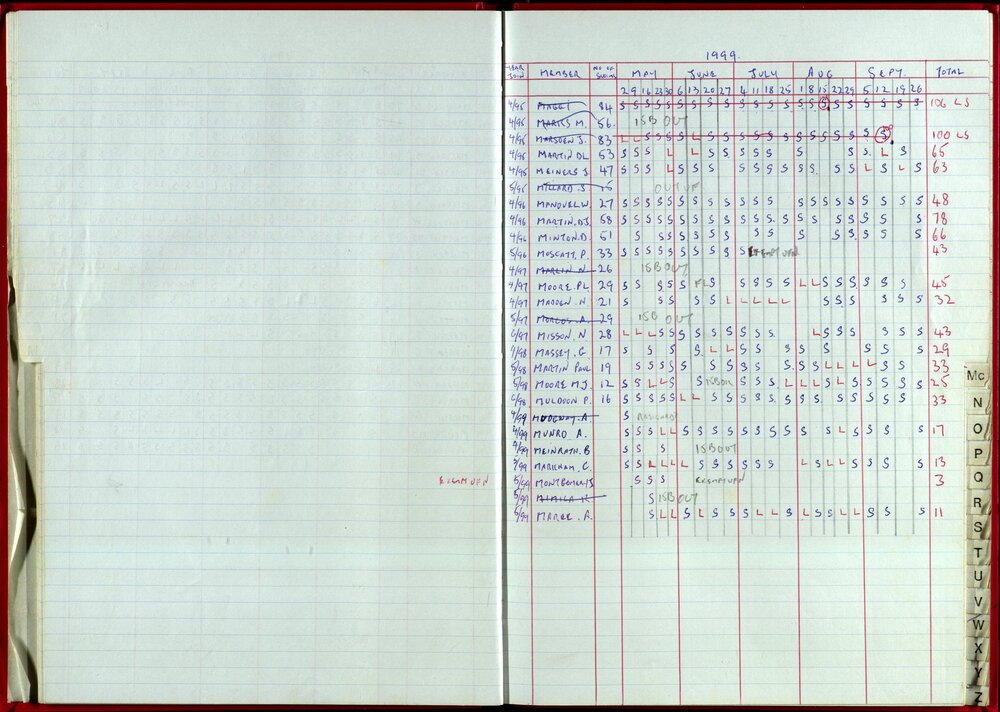 1999.
YEAR JOIN MEMBER NO OF SWIMS MAY JUNE JULY AUG SEPT. TOTAL
2 9 16 23 30 6 13 20 27 4 11 18 25 1 8 15 22 29 5 12 19 26
4/95 84 S S S S S S S S S S S S S S S S S S S S S S 106 LS
4/95 MARKS M. 56. ISB OUT
4/95 MARSDEN S. 83 L L S S S S L S S S S S S S S S S S S S 100 LS
4/95 MARTIN DL 53 S S S L L S S S S S S S S S L S 65
4/95 MEINERS S 47 S S S L S S S S S S S S S S S S S L S L S 63
5/95 MILLARD.S 15 OUT UF
4/96 MANOUEL.W. 27 S S S S S S S S S S S S S S S S S S S S S S 48
4/96 MARTIN.D.J. 58 S S S S S S S S S S S S S S S S S S S S 78
4/96 MINTON.D. 51 S S S S S S S S S S S S S S S 66
5/96 MOSCATT, P. 33 S S S S S S S S S S 43
4/97 MARLIN N. 26 ISB OUT
4/97 MOORE. PL 29 S S S S S S S S S S L L S S S S S S 45
4/97 MADDEN. N 21 S S S S S L L L L L S S S S S S 32
5/97 MORCOS. A. 29 ISB OUT
6/97 MISSON. N 28 L L L S S S S S S S S S S L S S S S S S 43
4/98 MASSEY. G 17 S S S S L L S S S S S S S S S 29
5/98 MARTIN PAUL 19 S S S S S S S S S S S S L L L L S S 33
5/98 MOORE M.J. 12 S S L L S S ISB OUT S S S L L L S L S S S S S S 25
6/98 MULDOON P. 16 S S S S S L L S S S S S S S S S S S S S 33
4/99 S RESIGNED
4/99 MUNRO A. S S S L L S S S S S S S S S S S L S S S S 17
4/99 MEINRATH. B S S S ISB OUT
3/99 MARKHAM, C. S S L L L L S S S S S S S L S L L S S S S 13
EXEMPT UFN 5/99 MONTGOMERIS S S S EXEMPT UFN 3
5/99 S ISB OUT
5/99 MAREE. A. S L L S L S S S S L L S L S S L L S S S 11
Mc
N
O
P
Q
R
S
T
U
V
W
X
Y
Z